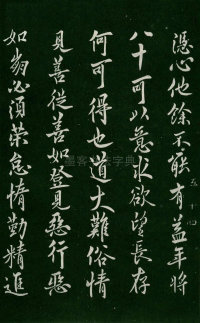 憑心他餘不能有益年將
八十可以意求欲望長存
何可得也道大難俗情
見善從善如登見惡行惡
如崩必須棄怠惰勤精進